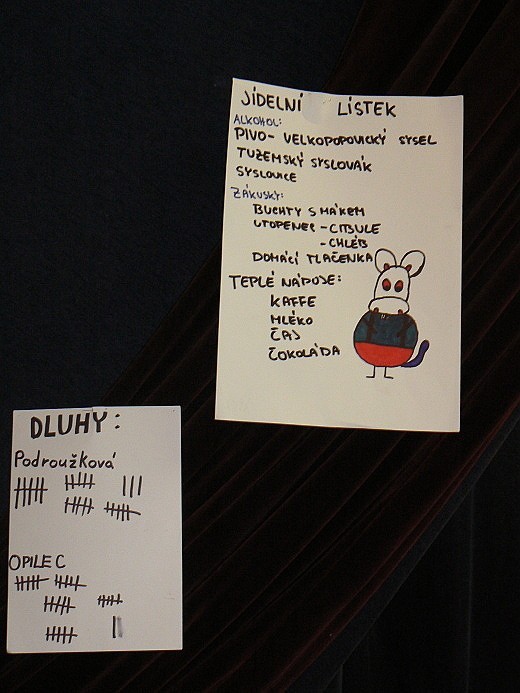 JÍDELNÍ LÍSTEK
ALKOHOL:
PIVO- VELKOPOPOVICKÝ SYSEL
TUZEMSKÝ SYSLOVÁK
SYSLOVICE
ZÁKUSKY:
BUCHTY S MÁKEM
UTOPENEC - CIBULE
- CHLÉB
DOMÁCÍ TLAČENKA
TEPLÉ NÁPOJE:
KAFFE
MLÉKO
ČAJ
ČOKOLÁDA
DLUHY:
Podroužková
OPILEC